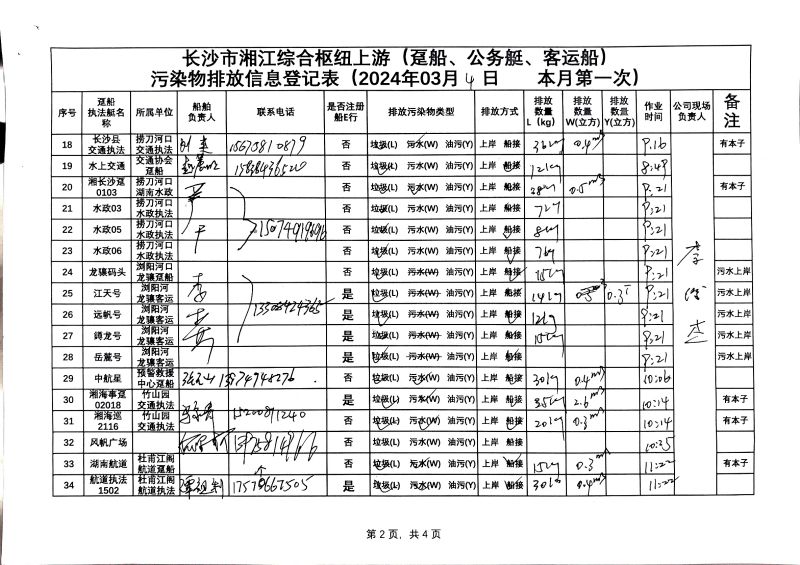 长沙市湘江综合枢纽上游（趸船、公务艇、客运船）
污染物排放信息登记表（2024年03月4日 本月第一次）
序号 趸船执法艇名称 所属单位 船舶负责人 联系电话 是否注册船E行 排放污染物类型 排放方式 排放数量L（kg） 排放数量W(立方) 排放数量Y(立方) 作业时间 公司现场负责人 备注
18 长沙县交通执法 捞刀河口交通执法 15670810879 否 垃圾(L) 污水(W) 油污(Y) 上岸 船接 36kg 0.4m³ 9:16 有本子
19 水上交通 交通协会趸船 15888436520 否 垃圾(L) 污水(W) 油污(Y) 上岸 船接 12kg 8:49
20 湘长沙趸0103 捞刀河口湖南水政 否 垃圾(L) 污水(W) 油污(Y) 上岸 船接 28kg 0.5m³ 9:21 有本子
21 水政03 捞刀河口水政执法 否 垃圾(L) 污水(W) 油污(Y) 上岸 船接 7kg 9:21
22 水政05 捞刀河口水政执法 否 垃圾(L) 污水(W) 油污(Y) 上岸 船接 8kg 9:21
23 水政06 捞刀河口水政执法 否 垃圾(L) 污水(W) 油污(Y) 上岸 船接 7kg 9:21
24 龙骧码头 浏阳河口龙骧趸船 否 垃圾(L) 污水(W) 油污(Y) 上岸 船接 15kg 9:21 污水上岸
25 江天号 浏阳河龙骧客运 李 是 垃圾(L) 污水(W) 油污(Y) 上岸 船接 14kg 0.3T 9:21 污水上岸
26 远帆号 浏阳河龙骧客运 是 垃圾(L) 污水(W) 油污(Y) 上岸 船接 12kg 9:21 污水上岸
27 鐏龙号 浏阳河龙骧客运 否 垃圾(L) 污水(W) 油污(Y) 上岸 船接 15kg 9:21 污水上岸
28 岳麓号 浏阳河龙骧客运 否 垃圾(L) 污水(W) 油污(Y) 上岸 船接 9:21 污水上岸
29 中航星 预警救援中心趸船 13974948276 否 垃圾(L) 污水(W) 油污(Y) 上岸 船接 30kg 0.4m³ 10:06
30 湘海事趸02018 竹山园交通执法 是 垃圾(L) 污水(W) 油污(Y) 上岸 船接 35kg 2.6m³ 10:14 有本子
31 湘海巡2116 竹山园交通执法 15200811240 否 垃圾(L) 污水(W) 油污(Y) 上岸 船接 20kg 0.3m³ 10:14 有本子
32 风帆广场 否 垃圾(L) 污水(W) 油污(Y) 上岸 船接 10:35
33 湖南航道 杜甫江阁航道趸船 否 垃圾(L) 污水(W) 油污(Y) 上岸 船接 15kg 0.3m³ 11:22 有本子
34 航道执法1502 杜甫江阁交通执法 是 垃圾(L) 污水(W) 油污(Y) 上岸 船接 30kg 0.4m³ 11:22
第 2 页，共 4 页